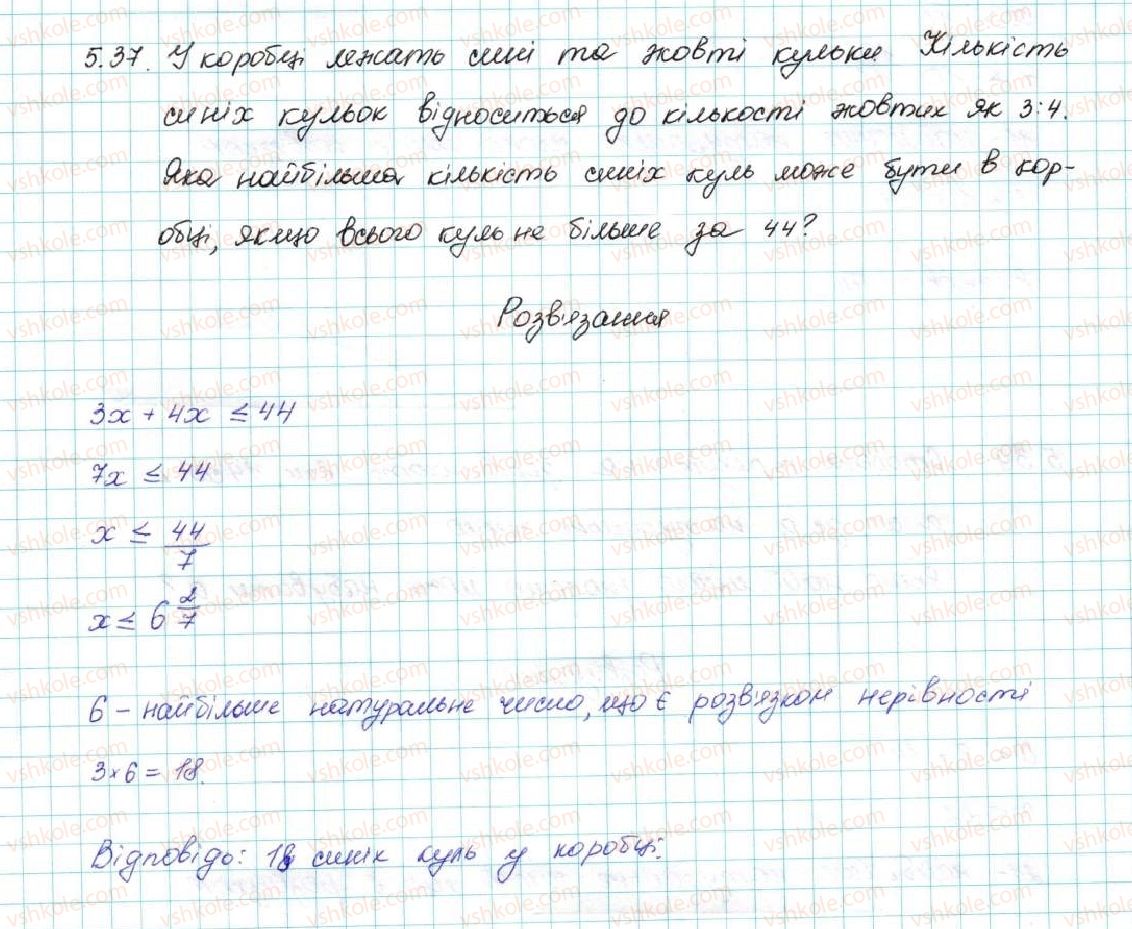 5.37. У коробці лежать сині та жовті кульки. Кількість
синіх кульок відноситься до кількості жовтих як 3:4.
Яка найбільша кількість синіх куль може бути в кор-
обці, якщо всього куль не більше за 44?
Розв'язання
3x + 4x ≤ 44
7x ≤ 44
x ≤ 44/7
x ≤ 6 2/7
6 – найбільше натуральне число, що є розв'язком нерівності
3×6 = 18.
Відповідь: 18 синіх куль у коробці.
vshkole.com